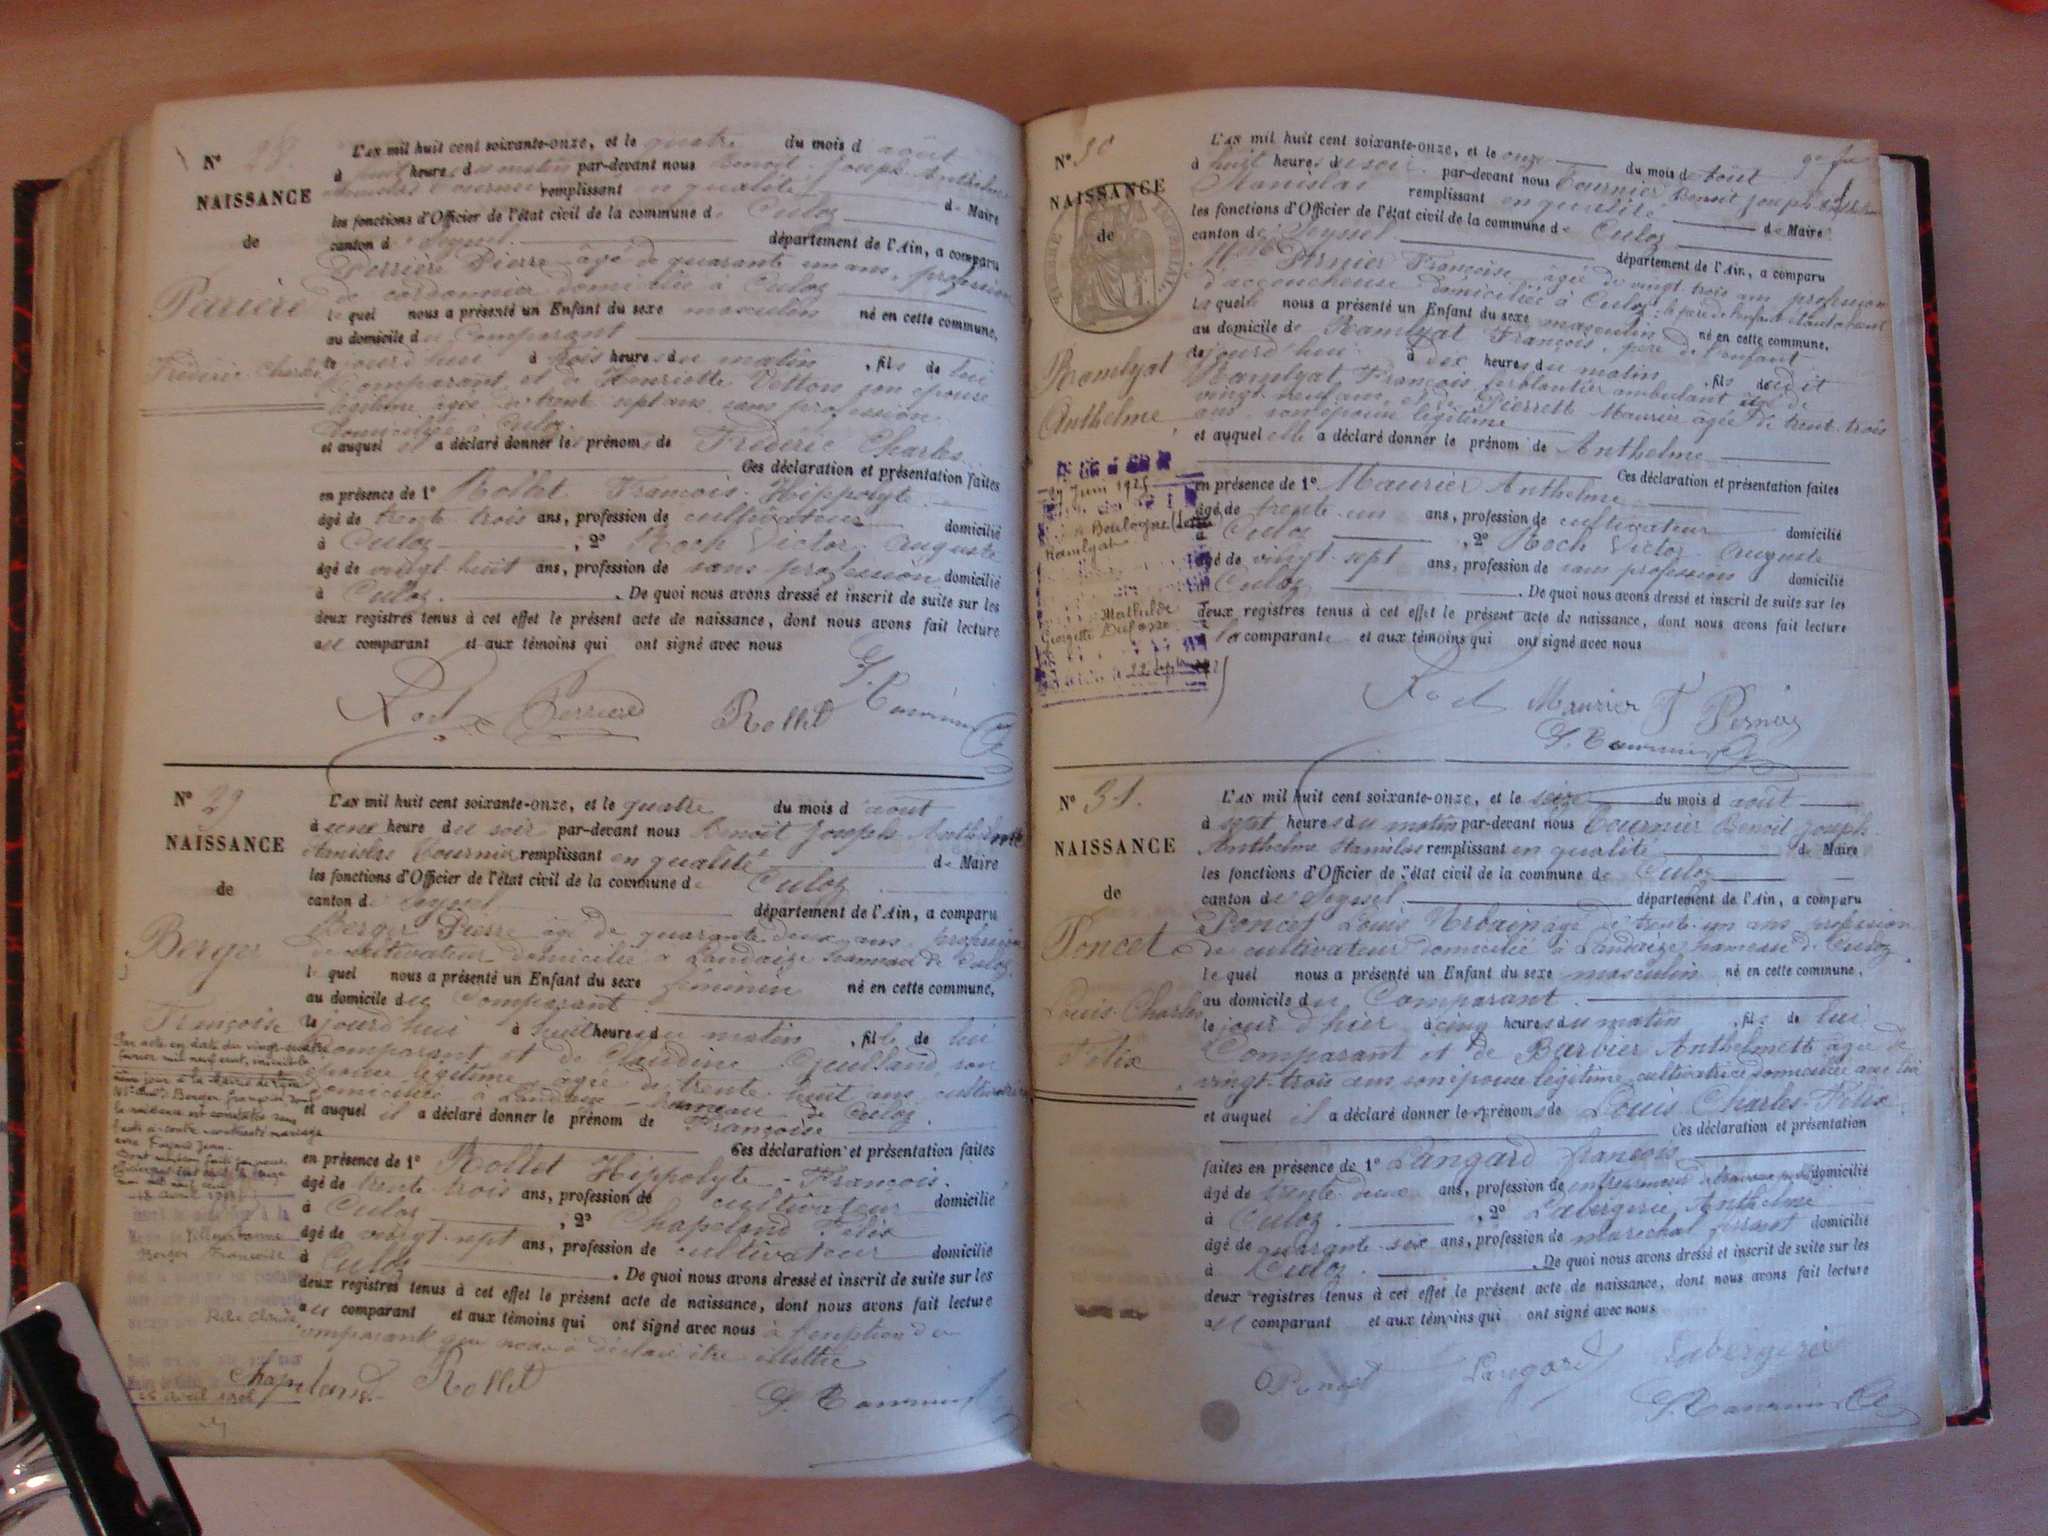 N° 28.
NAISSANCE
de
Parière
Frédéric Charles
L'AN mil huit cent soixante-onze, et le quatre du mois d août
à huit heures du matin par-devant nous Benoît Joseph Anthelme
Stanislas Tournier remplissant en qualité de Maire
les fonctions d'Officier de l'état civil de la commune de Culoz
canton de Seyssel département de l'Ain, a comparu
Perrière Pierre âgé de quarante un ans, profession
de cordonnier domicilié à Culoz
lequel nous a présenté un Enfant du sexe masculin né en cette commune,
au domicile du Comparant
le jourd'hui à trois heures du matin, fils de lui
Comparant et de Henriette Vetton son épouse
légitime âgée de trente sept ans sans profession
domiciliée à Culoz.
et auquel il a déclaré donner les prénoms de Frédéric Charles
Ces déclaration et présentation faites
en présence de 1° Rollet François Hippolyte
âgé de trente trois ans, profession de cultivateur domicilié
à Culoz, 2° Roch Victor Auguste
âgé de vingt huit ans, profession de sans profession domicilié
à Culoz. De quoi nous avons dressé et inscrit de suite sur les
deux registres tenus à cet effet le présent acte de naissance, dont nous avons fait lecture
au comparant et aux témoins qui ont signé avec nous
Roch Perrière Rollet S. Tournier
N° 29
NAISSANCE
de
Berger
Françoise
L'AN mil huit cent soixante-onze, et le quatre du mois d août
à une heure du soir par-devant nous Benoît Joseph Anthelme
Stanislas Tournier remplissant en qualité de Maire
les fonctions d'Officier de l'état civil de la commune de Culoz
canton de Seyssel département de l'Ain, a comparu
Berger Pierre âgé de quarante deux ans, profession
de cultivateur domicilié à Landaize hameau de Culoz
lequel nous a présenté un Enfant du sexe féminin né en cette commune,
au domicile du Comparant
le jourd'hui à huit heures du matin, fille de lui
Comparant et de Claudine Guilland, son
épouse légitime âgée de trente huit ans, cultivatrice
domiciliée à Landaize hameau de Culoz
et auquel il a déclaré donner le prénom de Françoise
Ces déclaration et présentation faites
en présence de 1° Rollet Hippolyte François.
âgé de trente trois ans, profession de cultivateur domicilié
à Culoz, 2° Chapeland Félix
âgé de vingt sept ans, profession de cultivateur domicilié
à Culoz. De quoi nous avons dressé et inscrit de suite sur les
deux registres tenus à cet effet le présent acte de naissance, dont nous avons fait lecture
au comparant et aux témoins qui ont signé avec nous à l'exception du
comparant qui nous a déclaré être illettré
Chapeland Rollet S. Tournier
Par acte en date du vingt-quatre
février mil neuf cent,
même jour à la Mairie de Lyon
Berger Françoise dont
la naissance est constatée dans
l'acte ci-contre a contracté mariage
avec Jean.
Villeurbanne
Berger Françoise
Claude
N° 30
NAISSANCE
de
TIMBRE IMPÉRIAL
Ramlyat
Anthelme
L'AN mil huit cent soixante-onze, et le onze du mois d août
à huit heures du soir par-devant nous Tournier Benoit Joseph Anthelme
Stanislas remplissant en qualité de Maire
les fonctions d'Officier de l'état civil de la commune de Culoz
canton de Seyssel département de l'Ain, a comparu
Françoise âgée de vingt trois ans profession
d'accoucheuse domiciliée à Culoz, le père de l'enfant étant absent
laquelle nous a présenté un Enfant du sexe masculin né en cette commune,
au domicile de Ramlyat François, père de l'enfant
le jourd'hui à dix heures du matin, fils dudit
Ramlyat François ferblantier ambulant âgé de
vingt neuf ans, et de Pierrette Maurier âgée de trente trois
ans, son épouse légitime
et auquel elle a déclaré donner le prénom de Anthelme
Ces déclaration et présentation faites
en présence de 1° Maurier Anthelme
âgé de trente un ans, profession de cultivateur domicilié
à Culoz, 2° Roch Victor Auguste
âgé de vingt sept ans, profession de sans profession domicilié
à Culoz. De quoi nous avons dressé et inscrit de suite sur les
deux registres tenus à cet effet le présent acte de naissance, dont nous avons fait lecture
à la comparante et aux témoins qui ont signé avec nous
Roch Maurier F Pernoz
S. Tournier
Juin 1925
Boulogne
Ramlyat
Mathilde
Georgette Dufosse
N° 31.
NAISSANCE
de
Poncet
Louis Charles
Félix
L'AN mil huit cent soixante-onze, et le seize du mois d août
à sept heures du matin par-devant nous Tournier Benoit Joseph
Anthelme Stanislas remplissant en qualité de Maire
les fonctions d'Officier de l'état civil de la commune de Culoz
canton de Seyssel département de l'Ain, a comparu
Poncet Louis Urbain âgé de trente un ans profession
de cultivateur domicilié à Landaize hameau de Culoz
lequel nous a présenté un Enfant du sexe masculin né en cette commune,
au domicile du Comparant.
le jour d'hier à cinq heures du matin, fils de lui
Comparant et de Barbier Anthelmette âgée de
vingt trois ans son épouse légitime cultivatrice domiciliée avec lui
et auquel il a déclaré donner les prénoms de Louis Charles Félix
Ces déclaration et présentation
faites en présence de 1° Langard françois
âgé de trente deux ans, profession de entrepreneur de travaux publics domicilié
à Culoz, 2° Labergerie Anthelme
âgé de quarante six ans, profession de maréchal ferrant domicilié
à Culoz. De quoi nous avons dressé et inscrit de suite sur les
deux registres tenus à cet effet le présent acte de naissance, dont nous avons fait lecture
au comparant et aux témoins qui ont signé avec nous
Poncet Langard Labergerie
S. Tournier